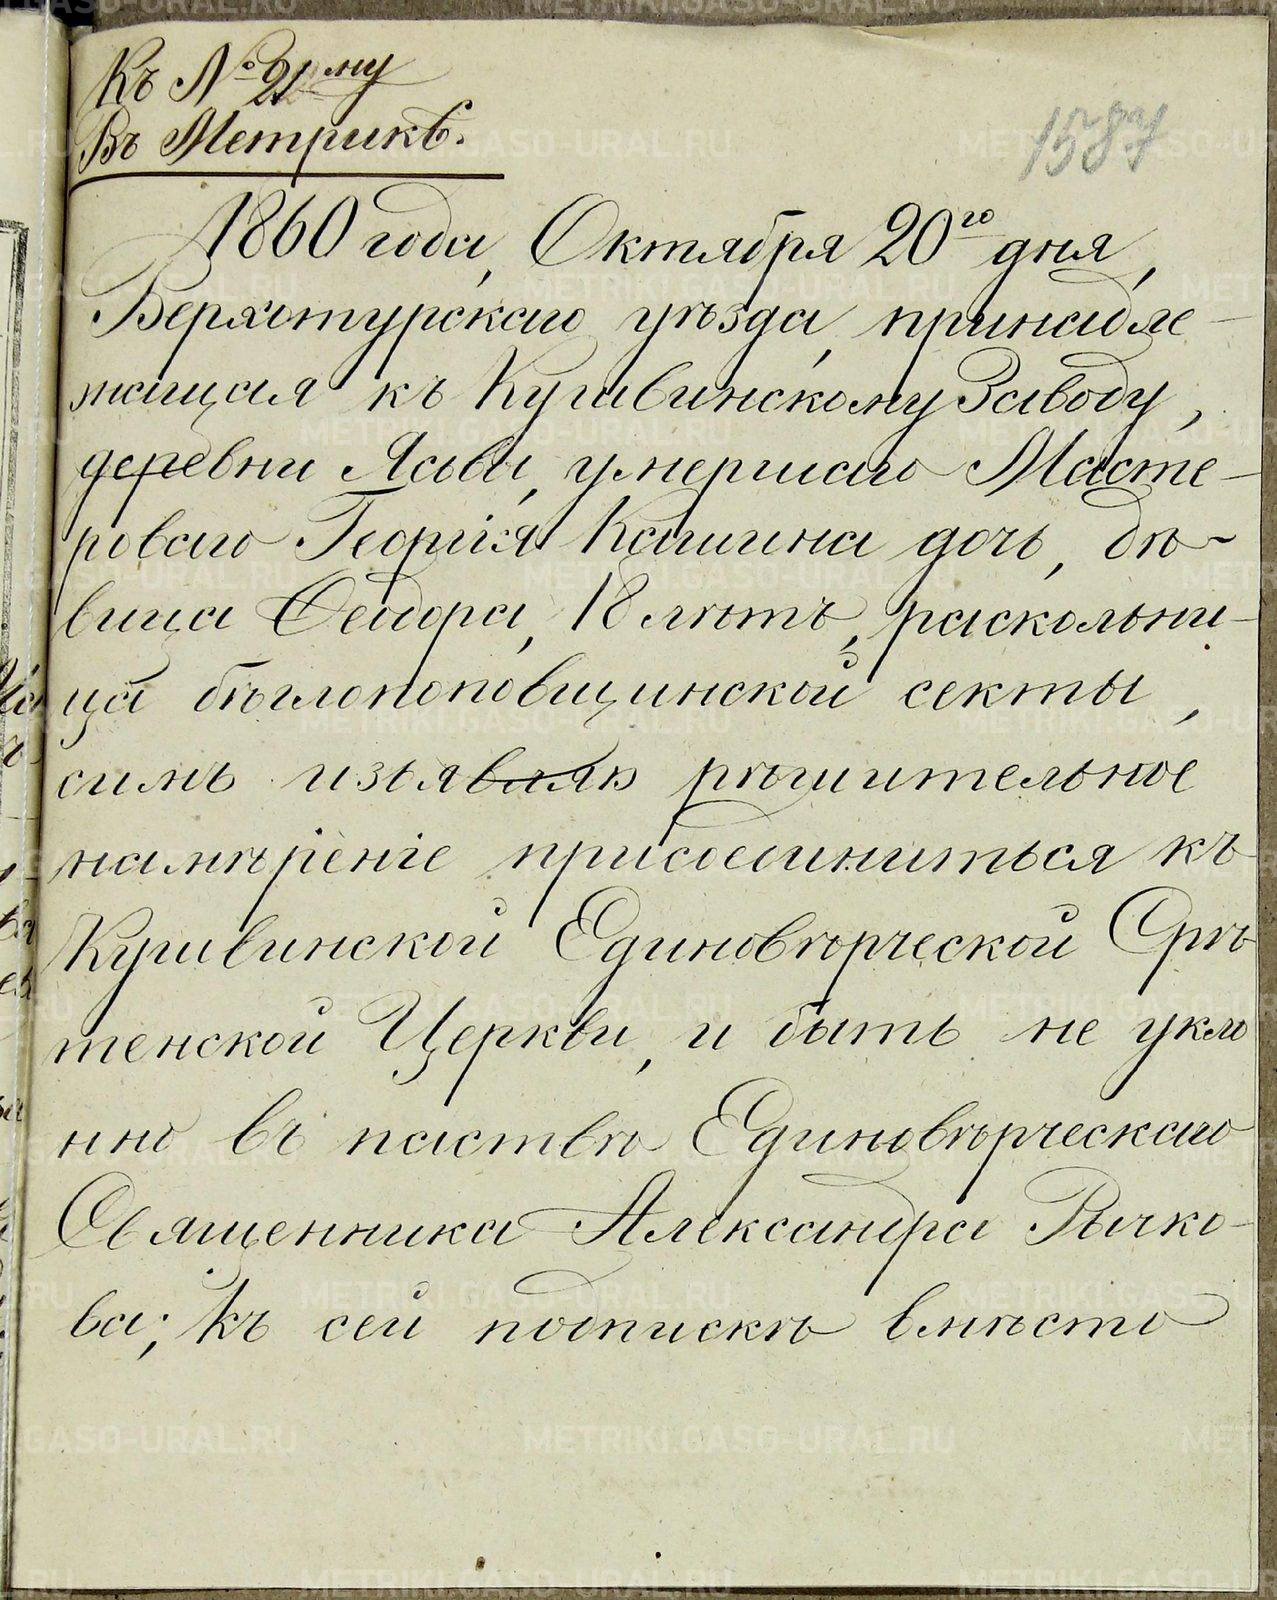 Къ № 21му
Въ Метрикѣ.
1587
1860 года, Октября 20го дня,
Верхотурскаго уѣзда, принадле-
жащая къ Кушвинскому Заводу,
деревни Ясьвы, умершаго Масте-
роваго Георгія Кашина дочь, дѣ-
вица Феодора, 18 лѣтъ, раскольни-
ца бѣглопоповщинской секты,
симъ изъявляю рѣшительное
намѣреніе присоединиться къ
Кушвинской Единовѣрческой Срѣ
тенской Церкви, и быть не укло
нно въ паствѣ Единовѣрческаго
Священника Александра Рычко-
ва; къ сей подпискѣ вмѣсто
METRIKI.GASO-URAL.RU